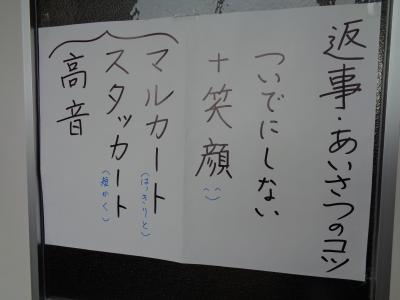 返事・あいさつのコツ
ついでにしない
+笑顔
マルカート
(はっきりと)
スタッカート
(短かく)
高音